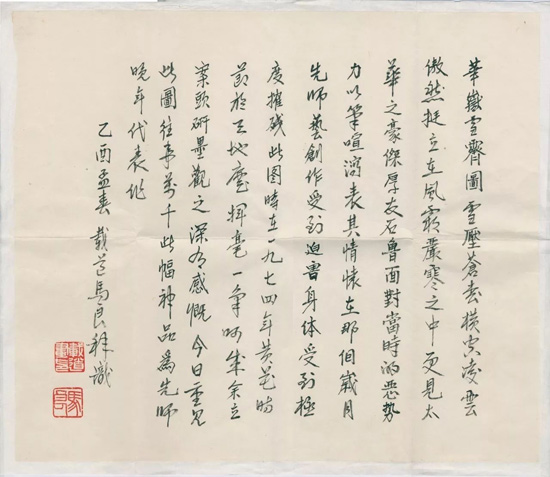 華嶽雪霽圖雪壓蒼橫空凌雲
傲然挺立在風霜嚴寒之中更見太
華之豪傑厚友石魯面對當時的惡勢
力以筆喧瀉表其情懷在那個歲月
先師藝創作受到迫害身体受到極
度摧殘此图時在一九七四年黄花時
節於地廬揮毫一氣呵成余立
案頭研墨觀之深有感慨今日重見
此圖往事萬千此幅神品為先師
晚年代表作
乙酉孟春 載道馬良拜識